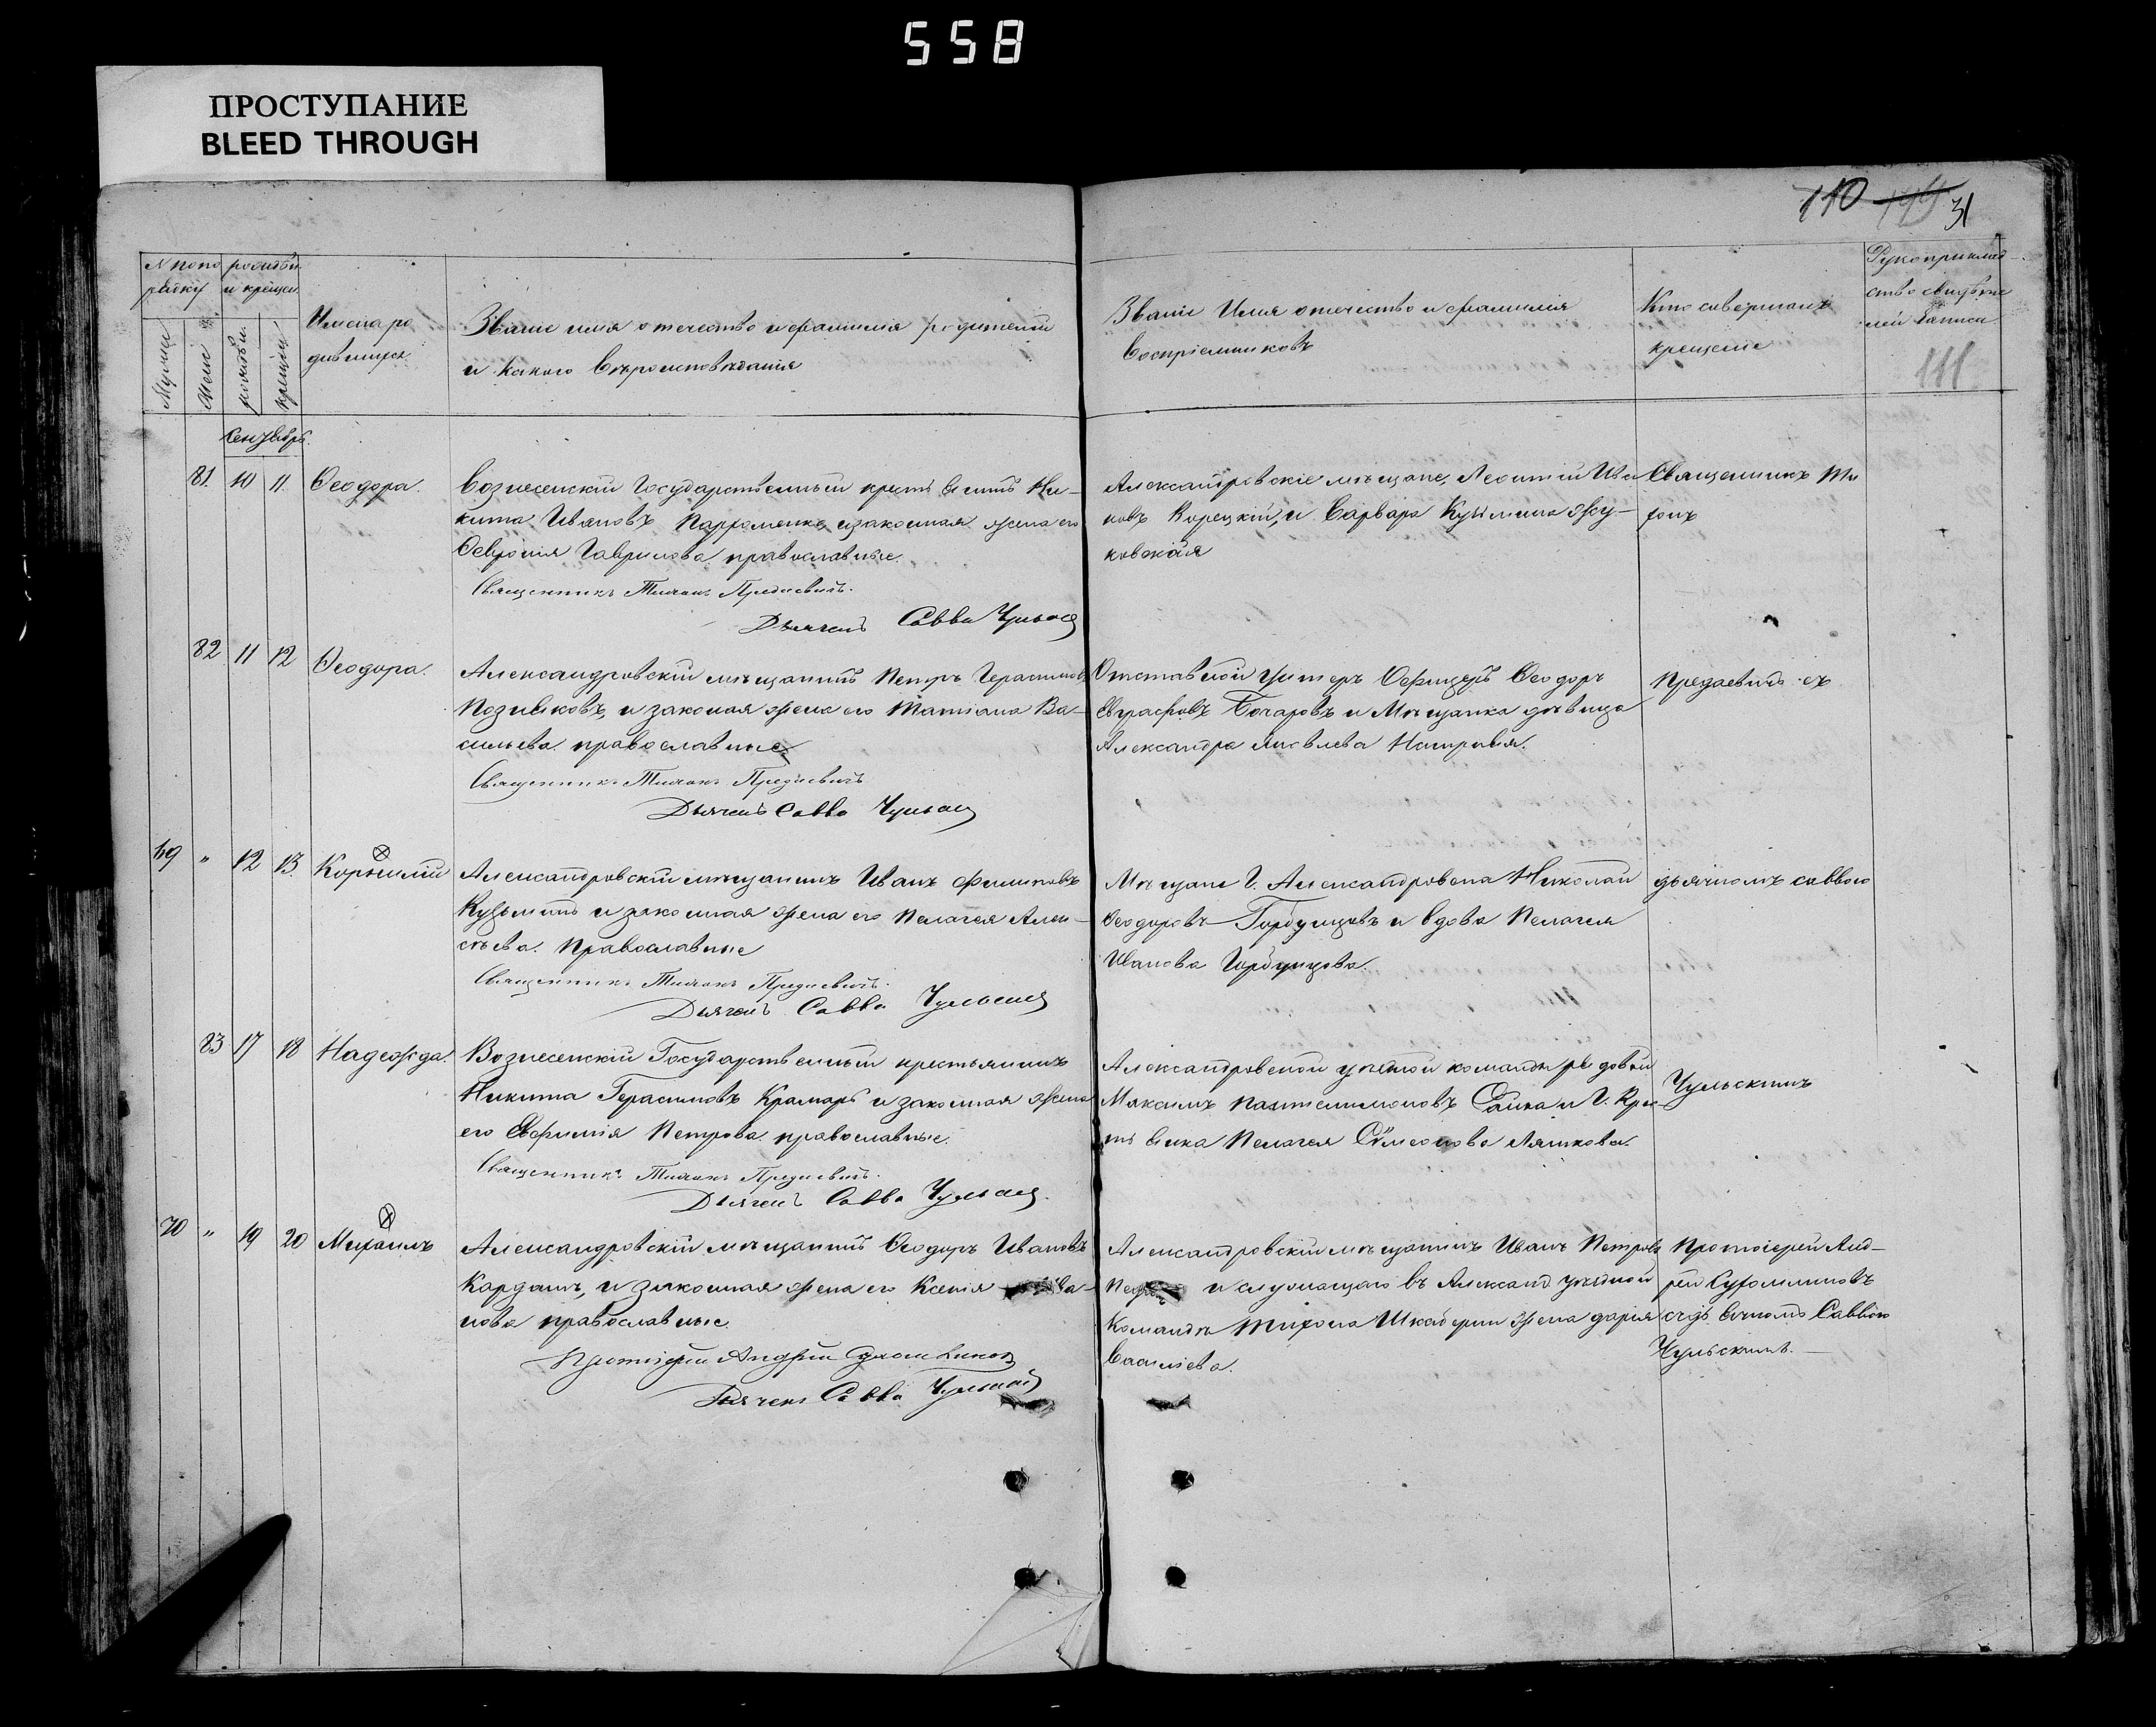 558
ПРОСТУПАНИЕ
BLEED THROUGH
110 119 31
N попо рядку
рожден и крещен.
Мужеск
Женс
рожден
крещен
Имена ро дившихъ
Званіе имя отечество и фамилія родителей
и какого вѣроисповѣданія
Званіе Имя отечество и фамилія
воспріемниковъ
Кто совершалъ
крещеніе
Рукоприклад-
ство свидѣте
лей записи
111
Сентябрь.
81. 10 11. Ѳеодора.
Вознесенскій Государственный крестьянинъ Ни-
кита Ивановъ Пархоменко, и законная жена его
Ѳевронія Гаврилова православные.
Священникъ Тихонъ Предаевичъ.
Дьячекъ Савва Чульскій
Александровскіе мѣщане, Леонтій Ива
новъ Корецкій, и Варвара Кузьмина Жу-
ковская
Священникъ Ти
хонъ
82 11 12 Ѳеодора.
Александровскій мѣщанинъ Петръ Герасимовъ
Позняковъ, и законая жена его Татіана Ва-
сильева православные
Священникъ Тихонъ Предаевичъ
Дьячекъ Савва Чульскій
Отставной Унтеръ Офицеръ Ѳеодоръ
Евграфовъ Бочаровъ и Мѣщанка дѣвица
Александра Яковлева
Предаевичъ съ
69 " 12 13. Корнилій
Александровскій мѣщанинъ Иванъ Филиповъ
Кузьминъ и законная жена его Пелагея Алек-
сѣева. Православные
Священникъ Тихонъ Предаевичъ.
Дьячекъ Савва Чульскій
Мѣщане Г. Александровска Николай
Ѳеодоровъ Горбунцовъ и вдова Пелагея
Иванова Горбунцова.
дьячкомъ саввою
83 17 18 Надежда.
Вознесенскій Государственный крестьянинъ
Никита Герасимовъ Крамарь и законная жена
его Евфимія Петрова православные.
Священникъ Тихонъ Предаевичъ.
Дьячекъ Савва Чульскій.
Александровской уѣздной команды рядовой
Максимъ Пантелимоновъ Саика и Г. Крес
тьянка Пелагея Симеонова Ляшкова.
Чульскимъ
70 " 19 20 Михаилъ
Александровскій мѣщанинъ Ѳеодоръ Ивановъ
Кардашъ, и законная жена его Ксенія
нова православные
Протоіерей Андрей Сухомлиновъ
Дьячекъ Савва Чульскій
Александровскій мѣщанинъ Иванъ Петровъ
и служащаго въ Александ. уѣздной
Командѣ Тихона жена дарія
Василіева.
Протоіерей Анд-
рей Сухомлиновъ
съ дьячкомъ Саввою
Чульскимъ.